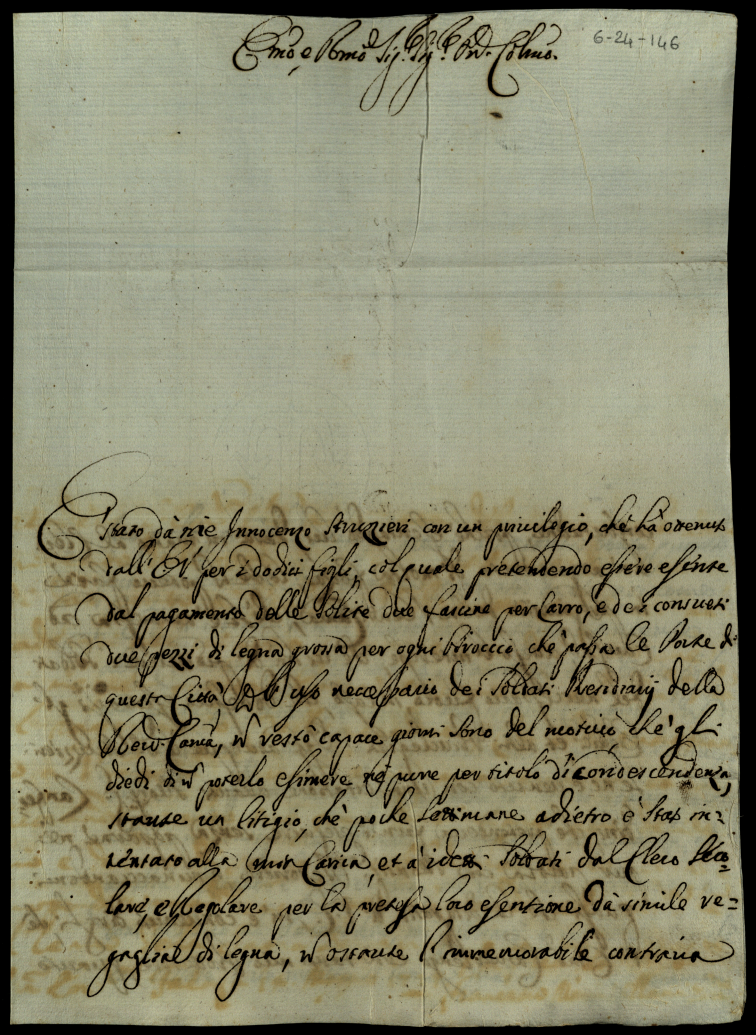 6-24-146
Emo, e Rmo Sig.r Sig.r Pron. Colmo.
E' stato da me Innocenzo Struzzieri con un privilegio, che hà ottenuto
dall' EV per i dodici figli, col quale pretendendo essere esente
dal pagamento delle solite due fascine per Carro, e dei consueti
due pezzi di legna grossa per ogni biroccio che passa le Porte di
questa Città per uso necessario dei Soldati Residenti della
Revd. Cam̃a, ñ restò capace giorni sono del motivo che gli
diedi di ñ poterlo esimere nè pure per titolo di condescendenza,
stante un litigio, che poche settimane adietro è stato in=
tentato alla mia Carica, et a' idetti Soldati dal Clero Seco=
lare, e Regolare per la pretesa loro esentione da simile re=
gaglia di legna, ñ ostante l'immemorabile contraria